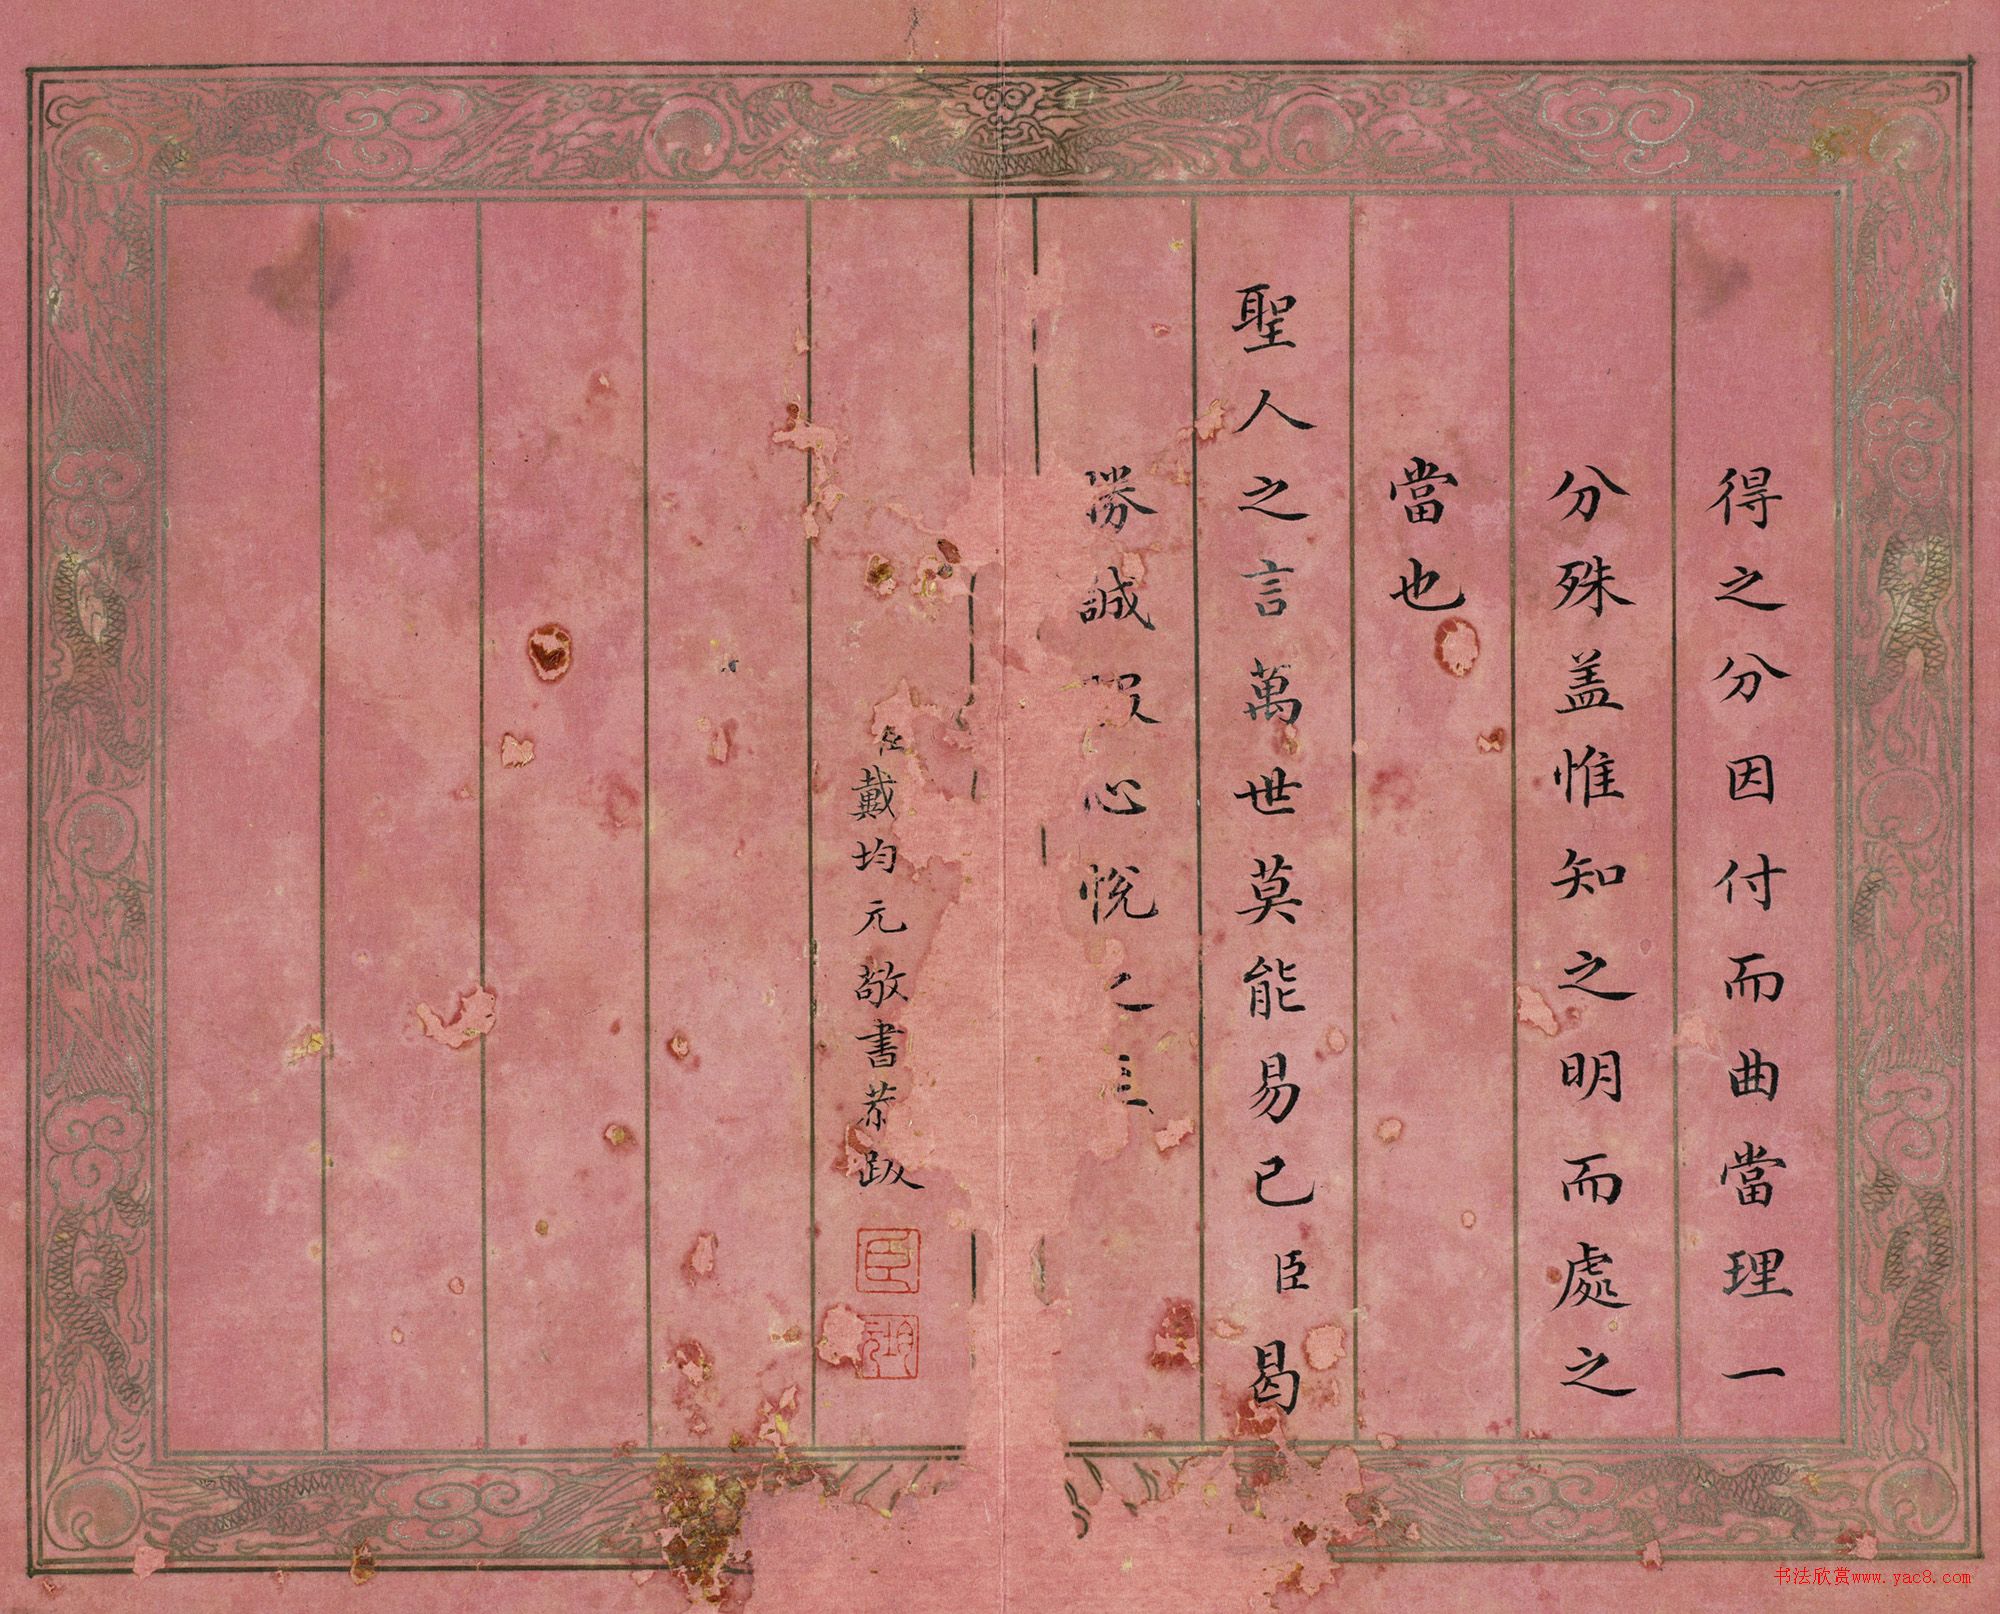 得之分因付而曲當理一
分殊盖惟知之明而處之
當也
聖人之言萬世莫能易已臣曷
勝誠心悅之
臣戴均元敬書恭跋
臣
书法欣赏www.yac8.com